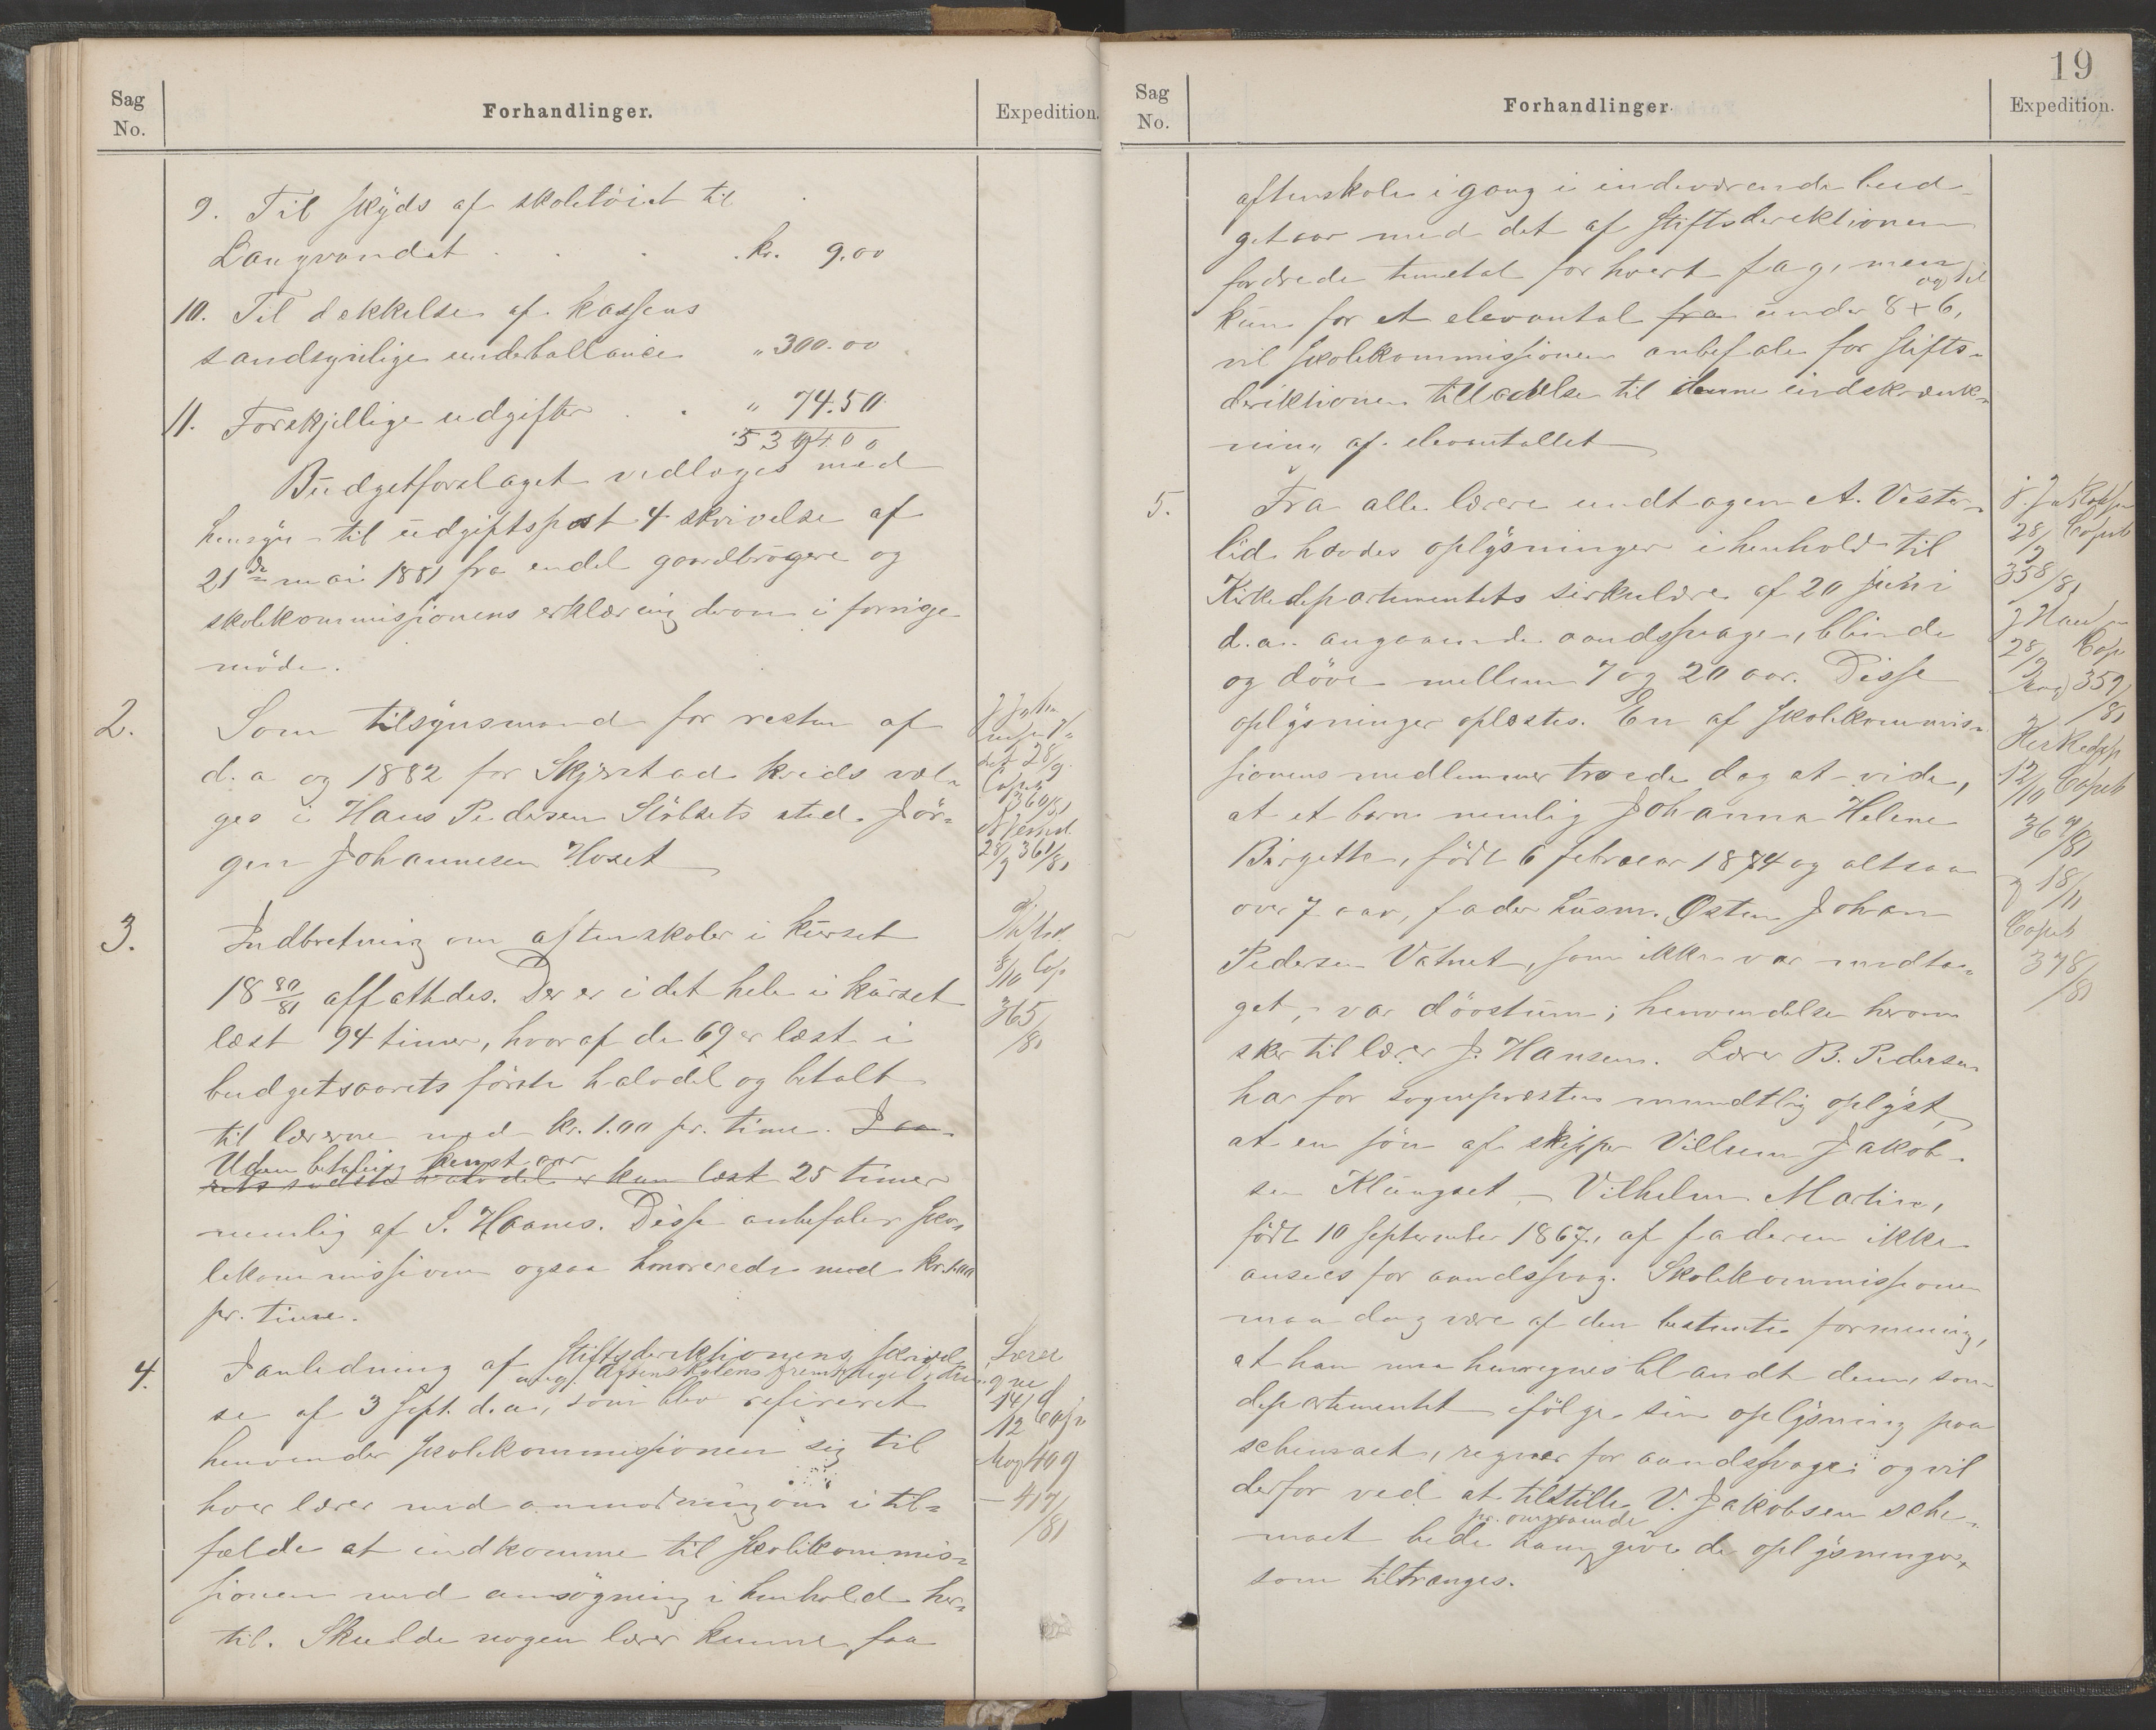 Sag No.
Forhandlinger.
Expedition.
9. Til skyds af skoletöiet til
Langvandet . . . kr. 9.00
10. Til dækkelse af kassens
sandsynlige underballance „ 300.00
11. Forskjellige udgifter . . „ 74.50
Budgetforslaget vedlægges med
hensyn til udgiftspost 4 skrivelse af
21de mai 1881 fra endel gaardbrugere og
skolekommissionens erklæring derom i forrige
möde.
2. Som tilsynsmand for resten af
d. a. og 1882 for Skjerstad kreds væl-
ges i Hans Pedersen Stölsets sted. Jör-
gen Johannesen Hoset
28/9
360/81
28/9 361/81
3. Indberetning om aftenskoler i kurset
18 80/81 affattedes. Der er i det hele i kurset
læst 94 timer, hvoraf de 69 er læst i
budgetsaarets förste halvdel og betalt
til lærerne med kr. 1.00 pr. time. I aa-
Uden betaling
rets sidste halvdel er kun læst 25 timer
nemlig af S. Haanes. Disse anbefaler sko-
lekommissionen ogsaa honorerede med kr. 1.00
pr. time.
8/10 Cop
365/81
4. I anledning af Stiftsdirektionens skrivel-
ang. Aftenskolens fremtidige Ordning
se af 3 sept. d. a., som blev refereret
henvender skolekommissionen sig til
hver lærer med anmodning om i til-
fælde at indkomme til skolekommis-
sionen med ansögning i henhold her-
til. Skulde nogen lærer kunne faa
14/12
409
– 417/81
19
Sag No.
Forhandlinger.
Expedition.
aftenskole igang i indeværende bud-
getaar med det af Stiftsdirektionen
fordrede timetal for hvert fag, men
og til
kun for et elevantal fra under 8 + 6,
vil skolekommissionen anbefale for stifts-
direktionen tilladelse til denne indskrænk-
ning af elevantallet
5. Fra alle lærere undtagen A. Vester-
lid havdes oplysninger i henhold til
Kirkedepartementets sirkulære af 20 juni
d. a. angaaende aandssvage, blinde
og döve mellem 7 og 20 aar. Disse
oplysninger oplæstes. En af skolekommis-
sionens medlemmer troede dog at vide,
at et barn nemlig Johanna Helene
Birgette, född 6 februar 1874 og altsaa
over 7 aar, fader husm. Østen Johan
Pedersen Vatnet, som ikke var medta-
get, var dövstum; henvendelse herom
sker til lærer J. Hansen. Lærer B. Pedersen
har for sognepræsten mundtlig oplyst,
at en sön af skipper Villum Jakob-
sen Klungset – Vilhelm Martin,
födt 10 september 1867, af faderen ikke
ansees for aandssvag. Skolekommissionen
maa dog være af den bestemte formening,
at han maa henregnes blandt dem, som
departementet ifölge sin oplysning paa
schemaet, regner for aandssvage; og vil
derfor ved at tilstille V. Jakobsen sche-
pr. omgaaende
maet bede ham give de oplysninger,
som tiltrænges.
28/9 Copieb
358/81
28/9 Cop
359/81
Kirkedep
12/10 Copieb
367/81
18/11
Copieb
378/81